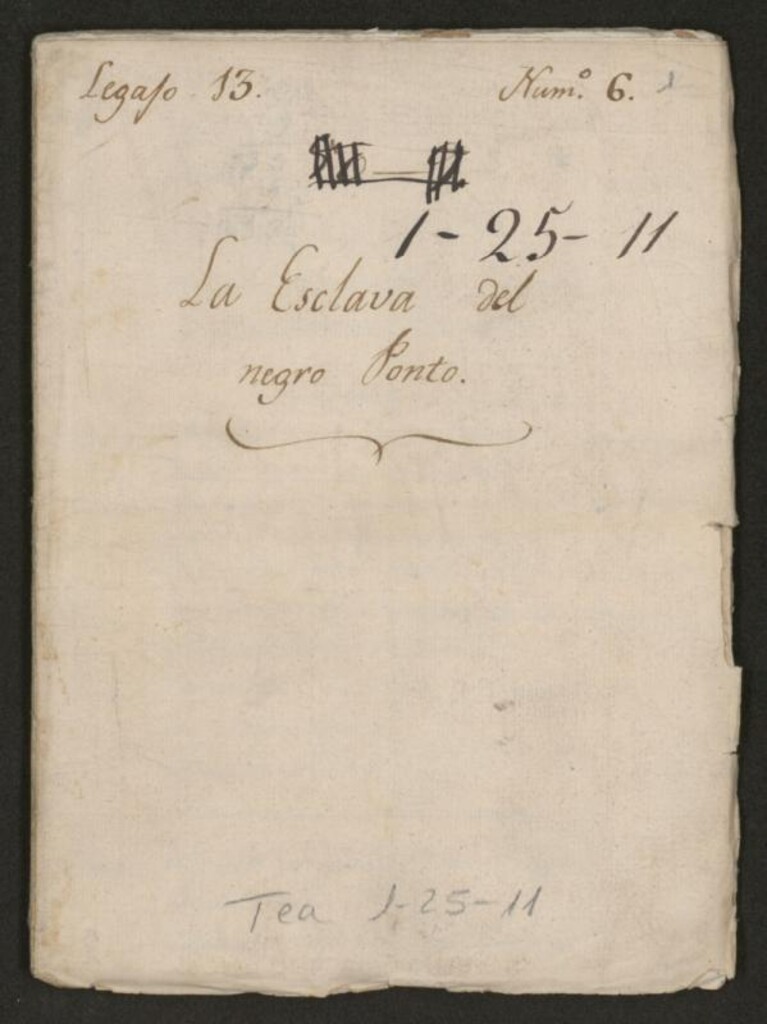 Legajo 13. Num.º 6. 1
1-25-11
La Esclava del
negro Ponto.
Tea 1-25-11